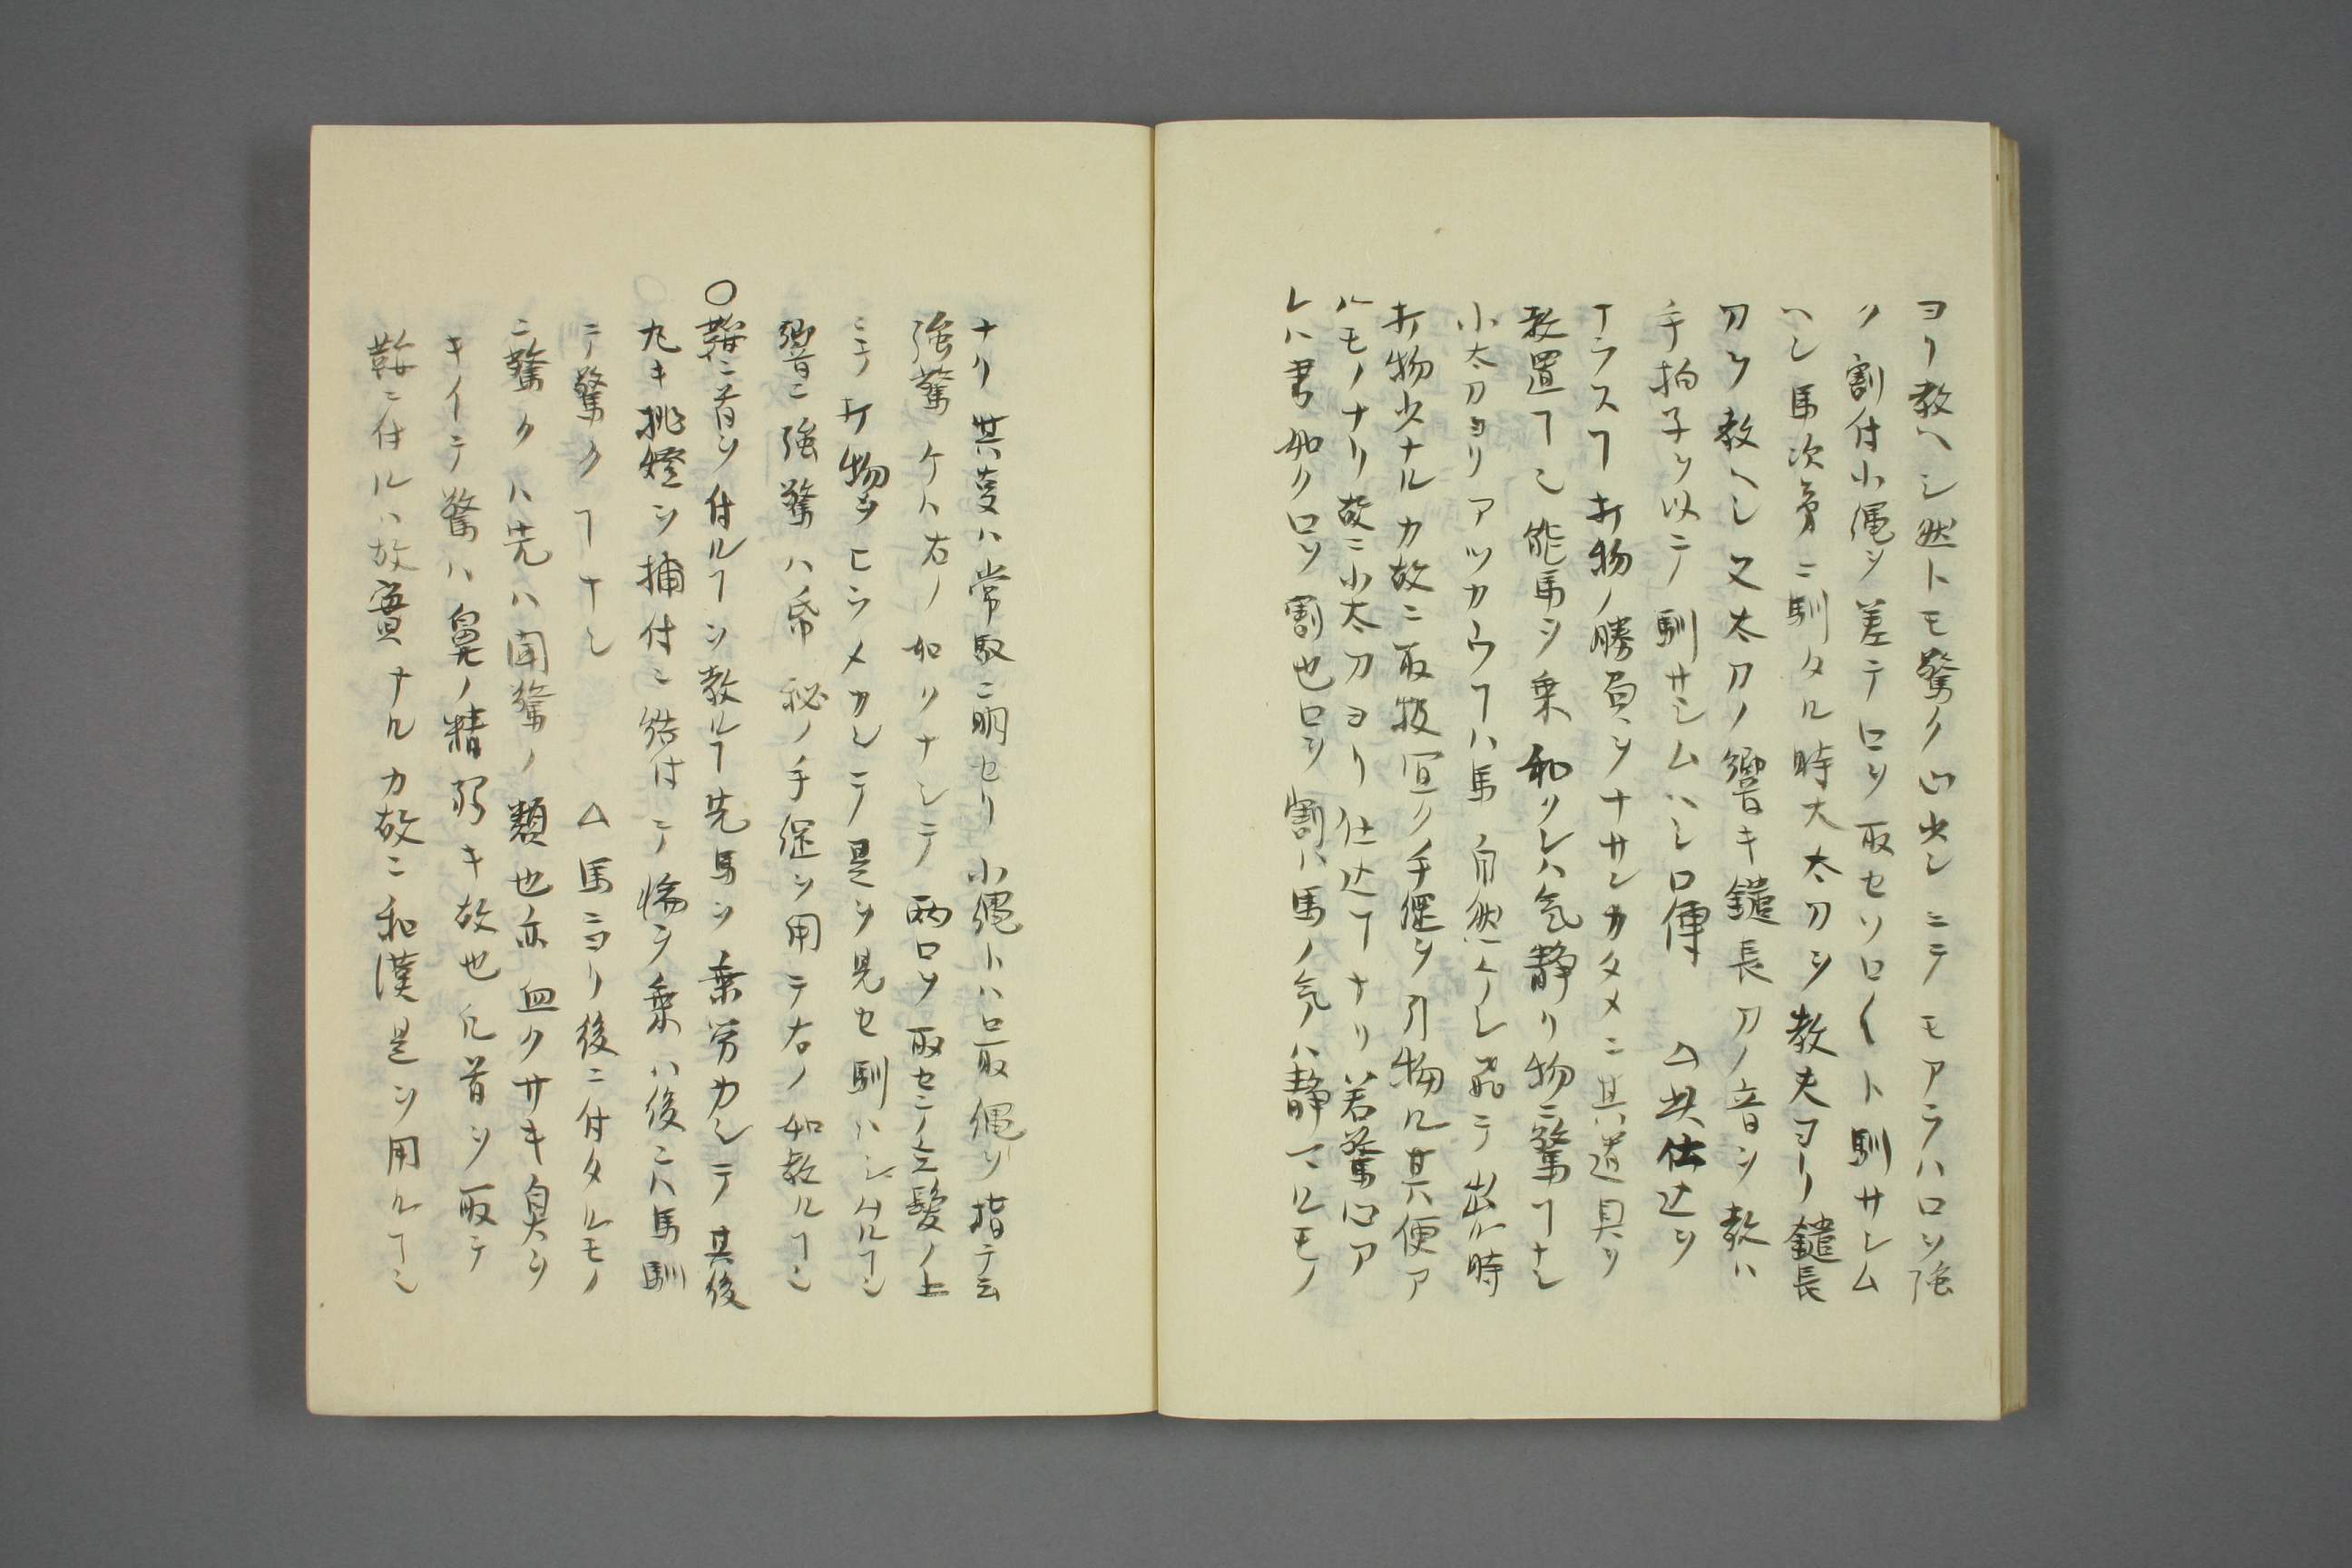 ヨリ教ヘシ然トモ驚ク心少シニテモアラハ口ヲ強
ク割付小縄ヲ差テ口ヲ取セソロ〱ト馴サシム
ヘシ馬次第ニ馴タル時大太刀ヲ教夫ヨリ鑓長
刀ヲ教ヘシ又太刀ノ響キ鑓長刀ノ音ヲ教ハ
手拍子ヲ以テ馴サシムヘシ口傳 △此仕込ヲ
ナラスヿ打物ノ勝負ヲナサンカタメニ其道具ヲ
教置ヿシ能馬ヲ乗和クレハ気静リ物ニ驚ヿナシ
小太刀ヨリアツカウヿハ馬自然 テ出ル時
打物少ナルカ故ニ取扱宜ク手縄ヲ引物ル其便ア
ルモノナリ故ニ小太刀ヨリ仕込ヿナリ若驚心ア
レハ書如ク口ヲ割也口ヲ割ハ馬ノ気ハ静マルモノ
ナリ其 ハ常馭ニ明セリ小縄トハ口取縄ヲ指テ云
強驚ケハ右ノ如クナシテ両口ヲ取セ 立髪ノ上
ニテ打物ヲヒラメカシテ是ヲ見セ馴ハシムルヿシ
響ニ強驚ハ 秘ノ手縄ヲ用テ右ノ如教ルヿシ
〇鞍ニ首ヲ付ルヿヲ教ルヿ先馬ヲ乗労カシテ其後
丸キ挑燈ヲ捕付ニ結付テ 乗ハ後ニハ馬馴
テ驚クヿナシ △馬ニヨリ後ニ付タルモノ
ニ驚クハ先ハ聞驚ノ類也亦血クサキ臭ヲ
キイテ驚ハ鼻ノ精弱キ故也凡首ヲ取テ
鞍ニ付ルハ故実ナルカ故ニ和漢是ヲ用ルヿシ